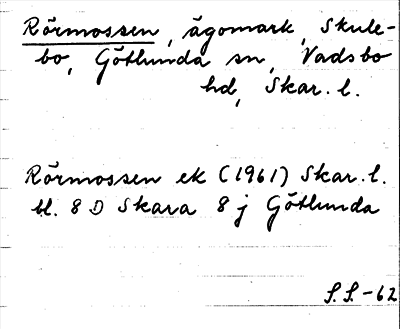 Rörmossen, ägomark, Skule-
bo, Götlunda sn, Vadsbo
hd, Skar. l.
Rörmossen ek (1961) Skar. l.
bl. 8 D Skara 8 j Götlunda
S.S.-62